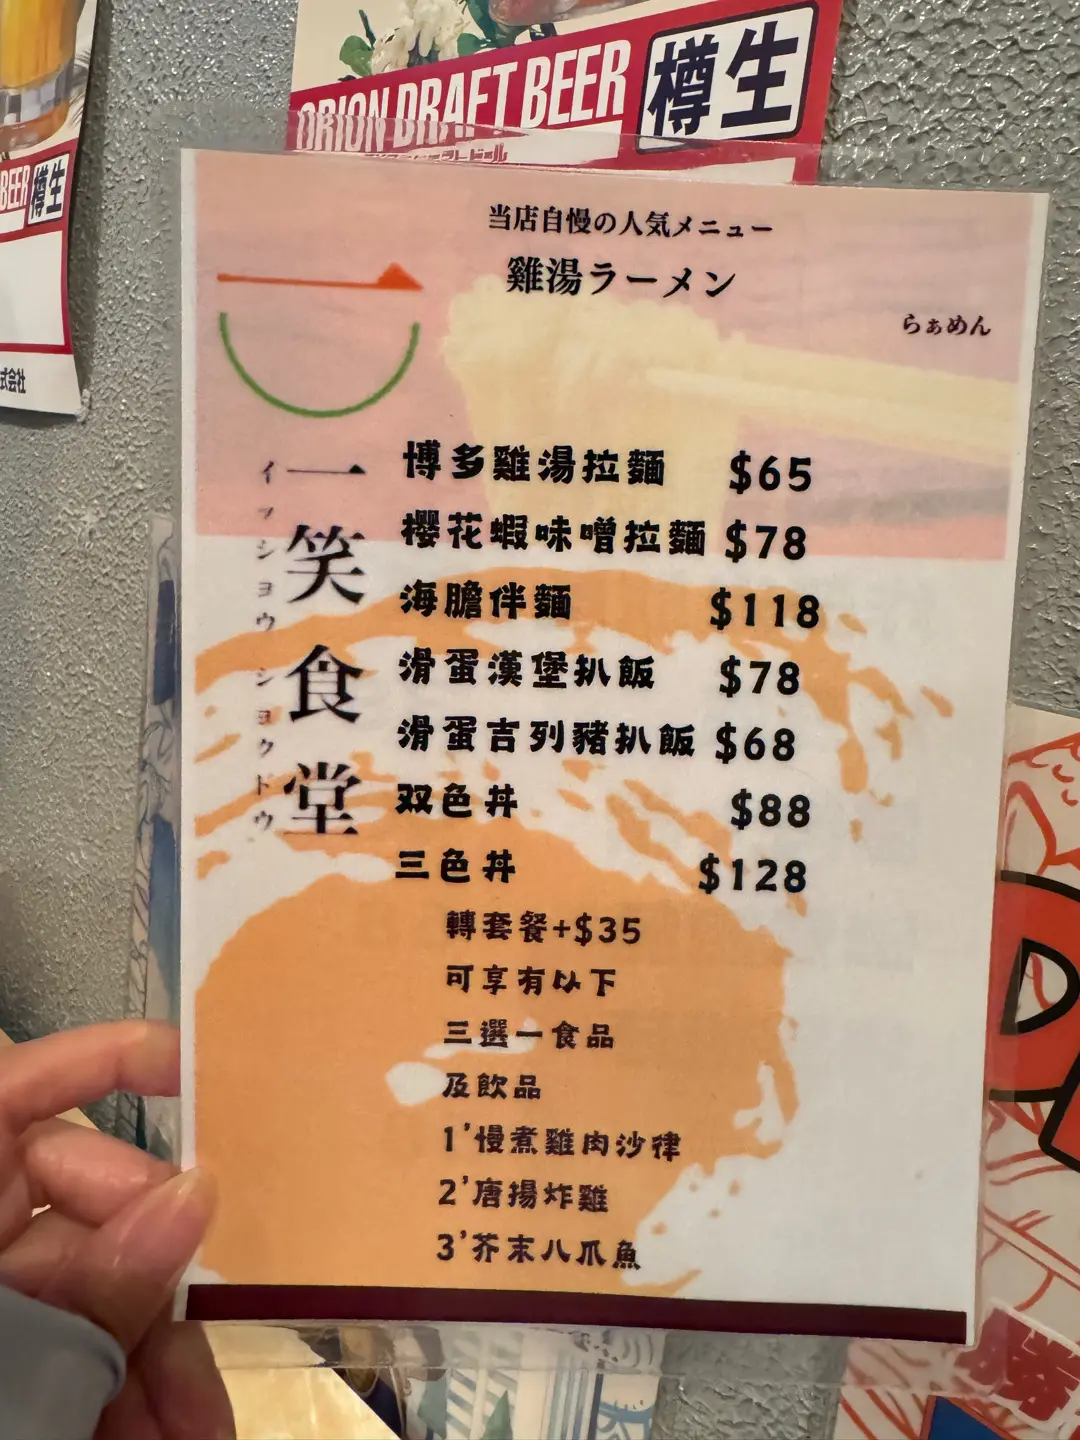 ORION DRAFT BEER 樽生
BEER 樽生
式会社
当店自慢の人気メニュー
雞湯ラーメン
らぁめん
一笑食堂
イッショウショクドウ
博多雞湯拉麵 $65
櫻花蝦味噌拉麵 $78
海膽伴麵 $118
滑蛋漢堡扒飯 $78
滑蛋吉列豬扒飯 $68
双色丼 $88
三色丼 $128
轉套餐+$35
可享有以下
三選一食品
及飲品
1'慢煮雞肉沙律
2'唐揚炸雞
3'芥末八爪魚